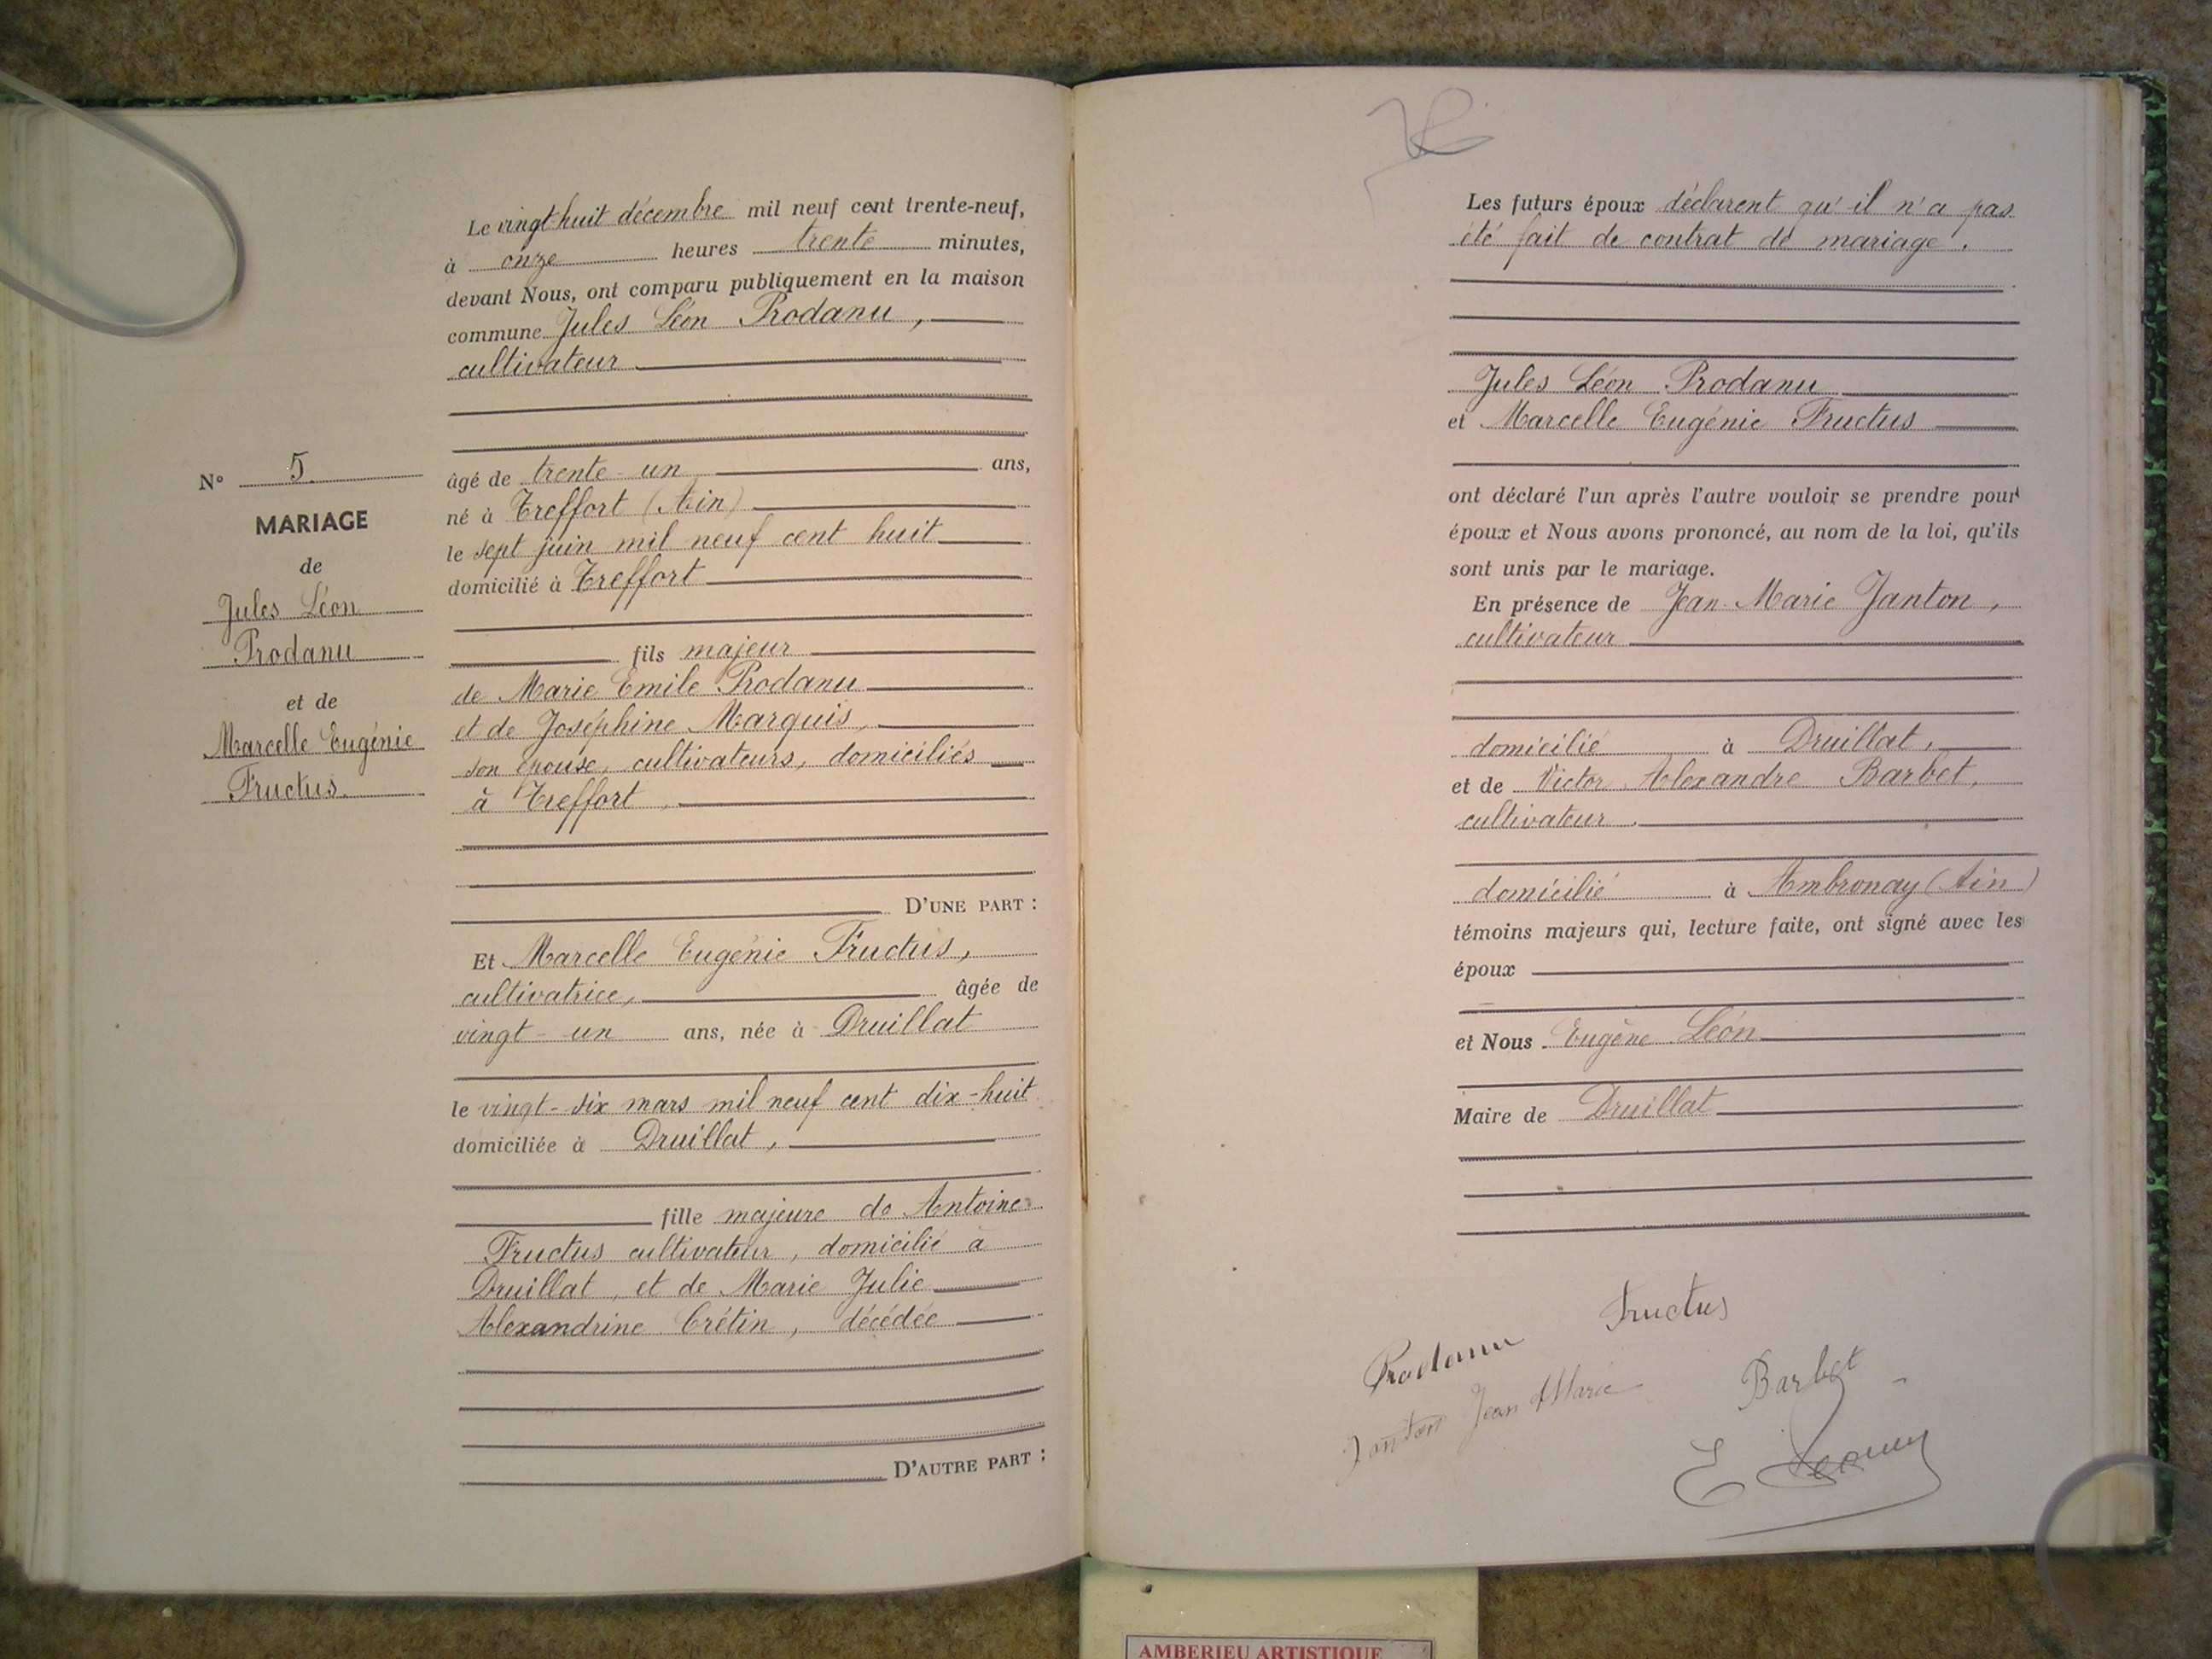 N° 5.
MARIAGE
de
Jules Léon
Prodanu
et de
Marcelle Eugénie
Fructus.
Le vingt huit décembre mil neuf cent trente-neuf,
à onze heures trente minutes,
devant Nous, ont comparu publiquement en la maison
commune Jules Léon Prodanu,
cultivateur
âgé de trente-un ans,
né à Treffort (Ain)
le sept juin mil neuf cent huit
domicilié à Treffort
fils majeur
de Marie Emile Prodanu
et de Joséphine Marquis,
son épouse, cultivateurs, domiciliés
à Treffort,
D'UNE PART :
Et Marcelle Eugénie Fructus,
cultivatrice, âgée de
vingt-un ans, née à Druillat
le vingt-six mars mil neuf cent dix-huit
domiciliée à Druillat,
fille majeure de Antoine
Fructus cultivateur, domicilié à
Druillat, et de Marie Julie
Alexandrine Crétin, décédée
D'AUTRE PART :
Les futurs époux déclarent qu'il n'a pas
été fait de contrat de mariage.
Jules Léon Prodanu
et Marcelle Eugénie Fructus
ont déclaré l'un après l'autre vouloir se prendre pour
époux et Nous avons prononcé, au nom de la loi, qu'ils
sont unis par le mariage.
En présence de Jean-Marie Janton,
cultivateur
domicilié à Druillat,
et de Victor Alexandre Barbet,
cultivateur.
domicilié à Ambronay (Ain)
témoins majeurs qui, lecture faite, ont signé avec les
époux
et Nous Eugène Léon
Maire de Druillat
Fructus
Prodanu
Janton Jean Marie
Barbet
E
AMBERIEU ARTISTIQUE